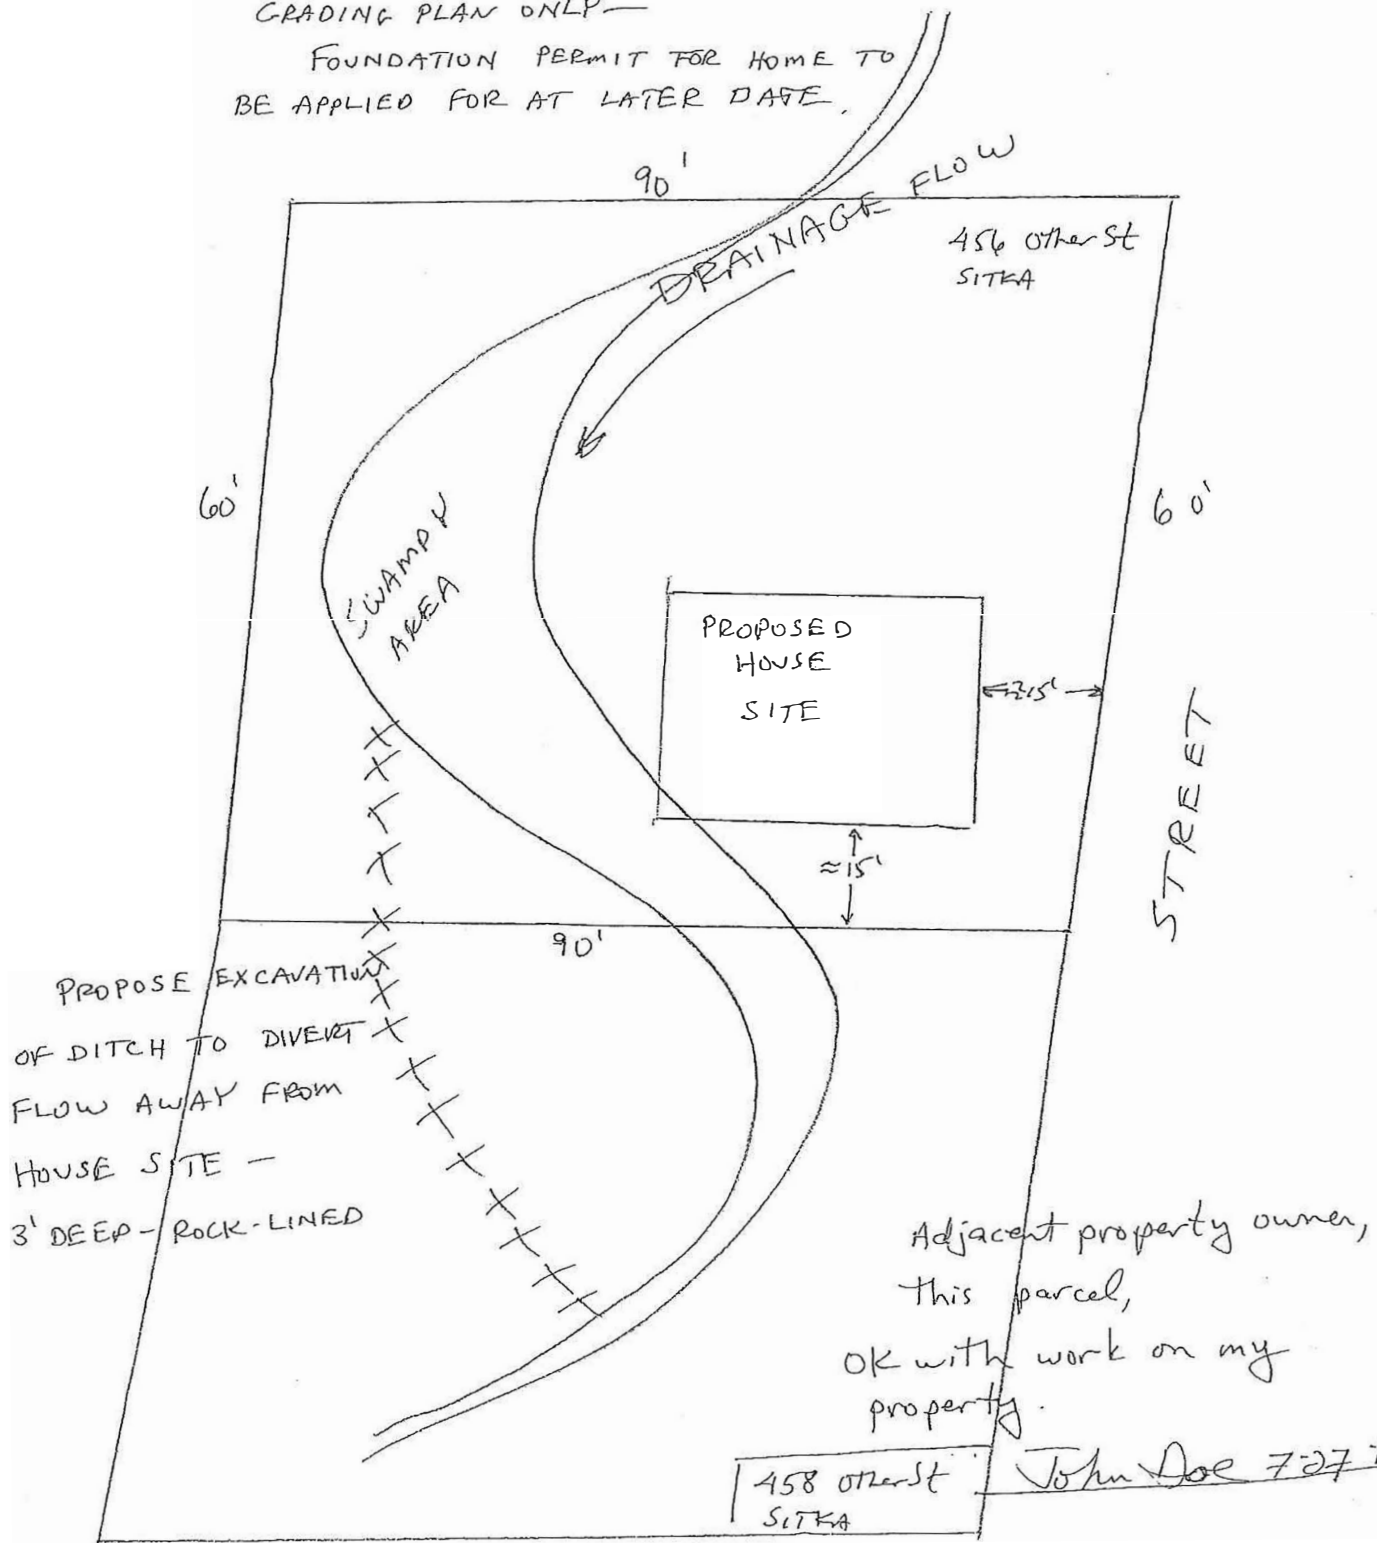 GRADING PLAN ONLY—
FOUNDATION PERMIT FOR HOME TO
BE APPLIED FOR AT LATER DATE.
90'
DRAINAGE FLOW
456 Other St
SITKA
60'
60'
SWAMPY
AREA
PROPOSED
HOUSE
SITE
≈15'
≈15'
STREET
90'
PROPOSE EXCAVATION
OF DITCH TO DIVERT
FLOW AWAY FROM
HOUSE SITE —
3' DEEP - ROCK-LINED
Adjacent property owner,
this parcel,
OK with work on my
property.
458 Other St
SITKA
John Doe 7-27